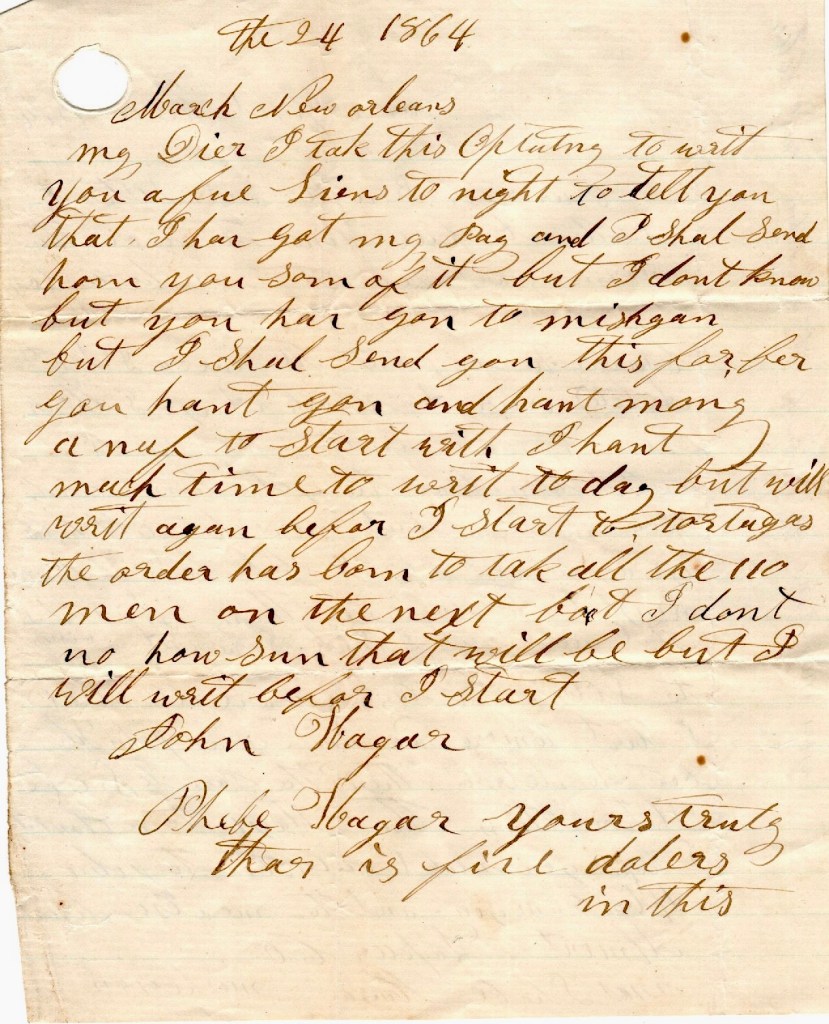 the 24 1864
March New orleans
my Dier I tak this Optutny to writ
you a fue Liens to night to tell you
that I hav got my Pay and I shal send
hom you som of it but I dont know
but you hav gon to mishgan
but I shal send you this for fer
you hant gon and hant mony
a nuf to start with I hant
much time to writ to day but will
writ agan befor I start to tortugas
the order has bom to tak all the 110
men on the next bot I dont
no how sun that will be but I
will writ befor I start
John Hagar
Phebe Hagar yours truly
thar is five dolers
in this